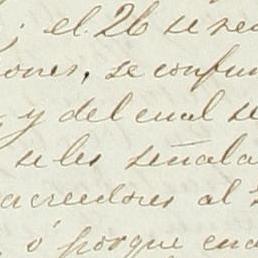 ; el 26 se re
ones, se confun
y del cual se
se les señala
acreedores al
ó porque cua